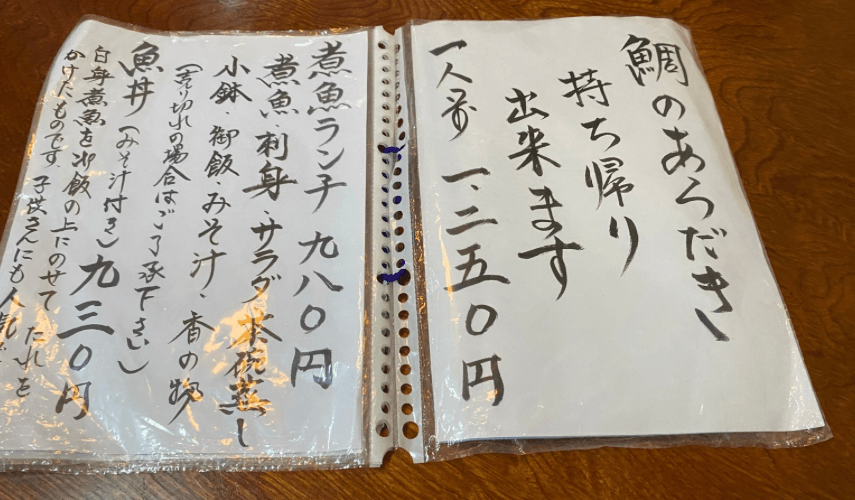 鯛のあらだき
持ち帰り
出来ます
一人前 一、二五〇円
煮魚ランチ 九八〇円
煮魚・刺身・サラダ 茶碗蒸し
小鉢・御飯・みそ汁・香の物
(売り切れの場合はご了承下さい)
魚丼(みそ汁付き)九三〇円
白身煮魚を御飯の上にのせて たれを
かけたものです 子供さんにも人気